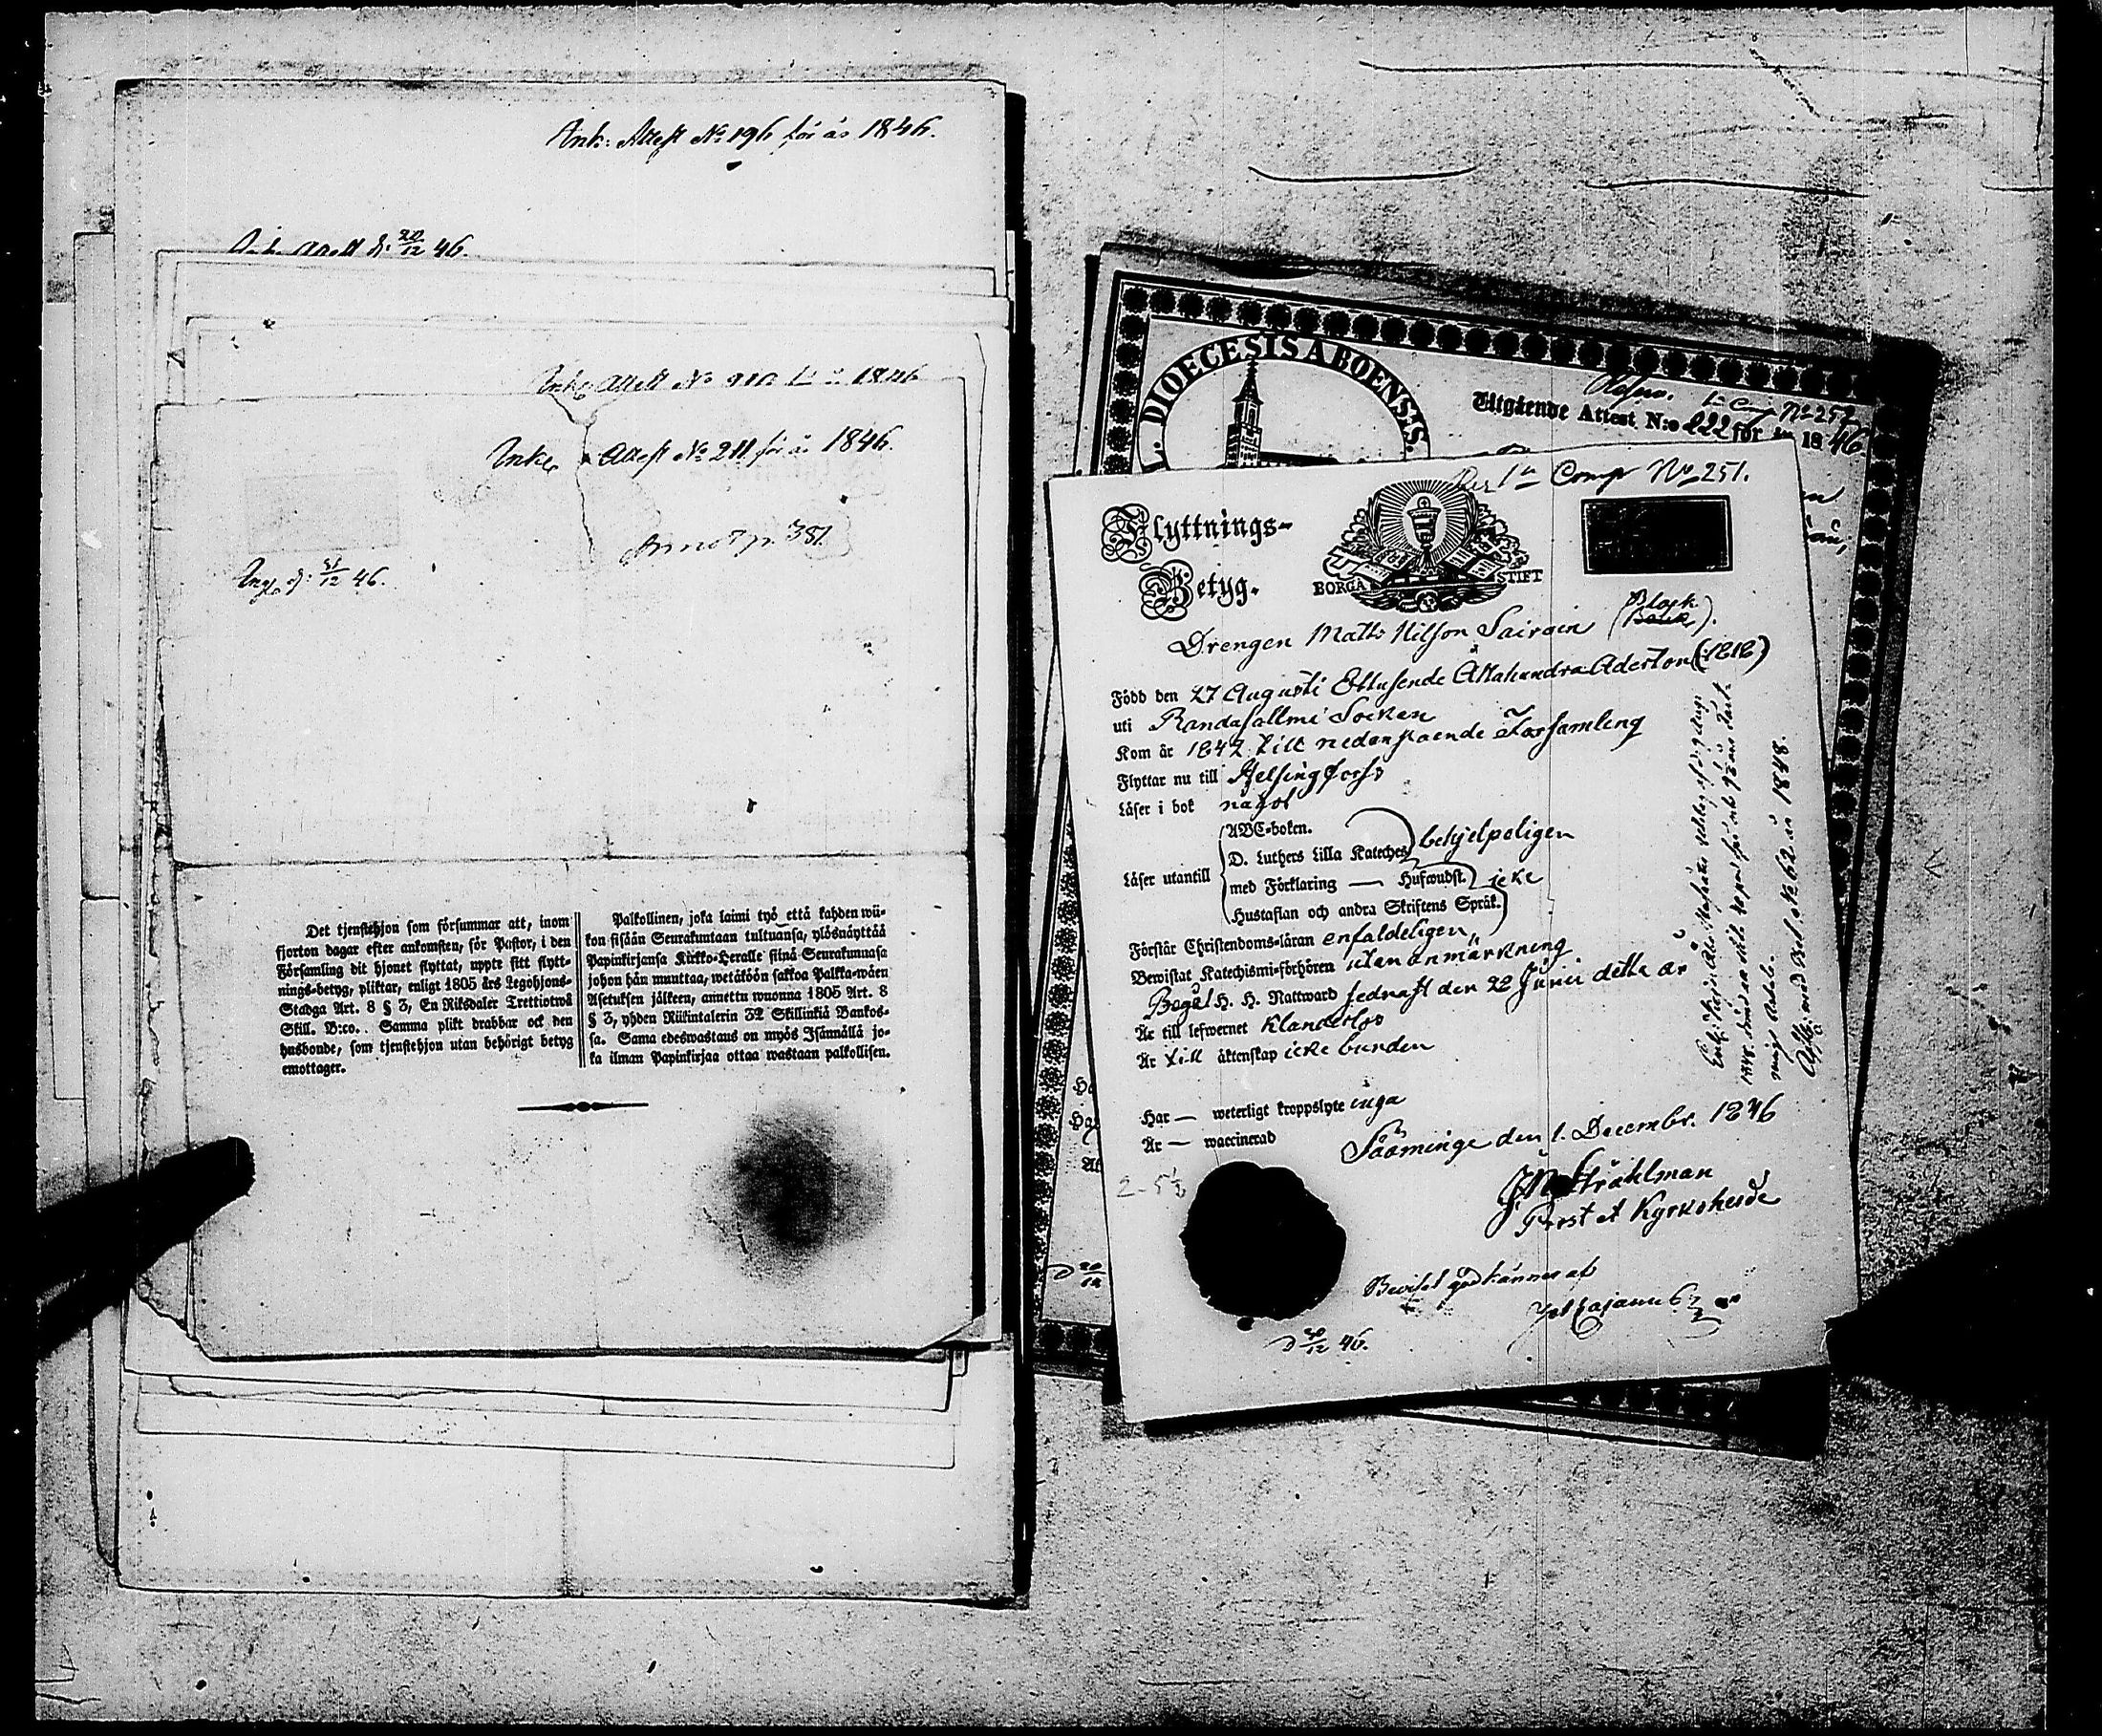 Ank: Attest No 196 för år 1846.
20/12 46.
Attest No 1846
Ink. Attest No 211 för år 1846.
p. 381.
d: 31/12 46.
Det tjenstehjon som försummar att, inom
fjorton dagar efter ankomsten, för Pastor, i den
Församling dit hjonet flyttat, uppte sitt flytt-
nings-betyg, pliktar, enligt 1805 års Legohjons-
Stadga Art. 8 § 3, En Riksdaler Trettiotwå
Skill. B:co. Samma plikt drabbar ock den
husbonde, som tjenstehjon utan behörigt betyg
emottager.
Palkollinen, joka laimi lyö että kahden wii-
kon sisään Seurakuntaan tultuansa, ylösnäyttää
Papinkirjansa Kirkko-Herralle siinä Seurakunnasa
johon hän muuttaa, wetäköön sakkoa Palkka-wäen
Asetuksen jälkeen, annettu wuonna 1805 Art. 8
§ 3, yhden Riikintalerin 32 Skillinkiä Bankos-
sa. Sama edeswastaus on myös Isännällä jo-
ka ilman Papinkirjaa ottaa wastaan palkollisen.
DIOECESIS ABOENSIS.
No 252
Utgående Attest N:o 222 för 1846.
1n Comp No 251.
Flyttnings-
Betyg.
BORGÅ STIFT
Drengen Matts Nilsson Sairain (Block).
Född den 27 Augusti Ettusende Åttahundra Aderton (:1818)
uti Randasallmi Socken
Kom år 1842 till nedanstaende Församling
Flyttar nu till Helsingfors
Läser i bok något
Läser utantill
ABC-boken.
D. Luthers Lilla Kateches behjelpeligen
med Förklaring — Hufwudst. icke
Hustaflan och andra Skriftens Språk.
Förstår Christendoms-läran enfaldeligen
Bewistat Katechismi-förhören utan anmärkning
Begått H. H. Nattward sednast den 22 Junii detta år
Är till lefwernet Klanderlös
Är till äktenskap icke bunden
Har — weterligt kroppslyte inga
Är — waccinerad
Sääminge den 1. Decembr. 1846
Stråhlman
Prost et Kyrkoherde
2-5½
Beviset godkännes af
d 20/12 46.
med Bet No 62 år 1848.